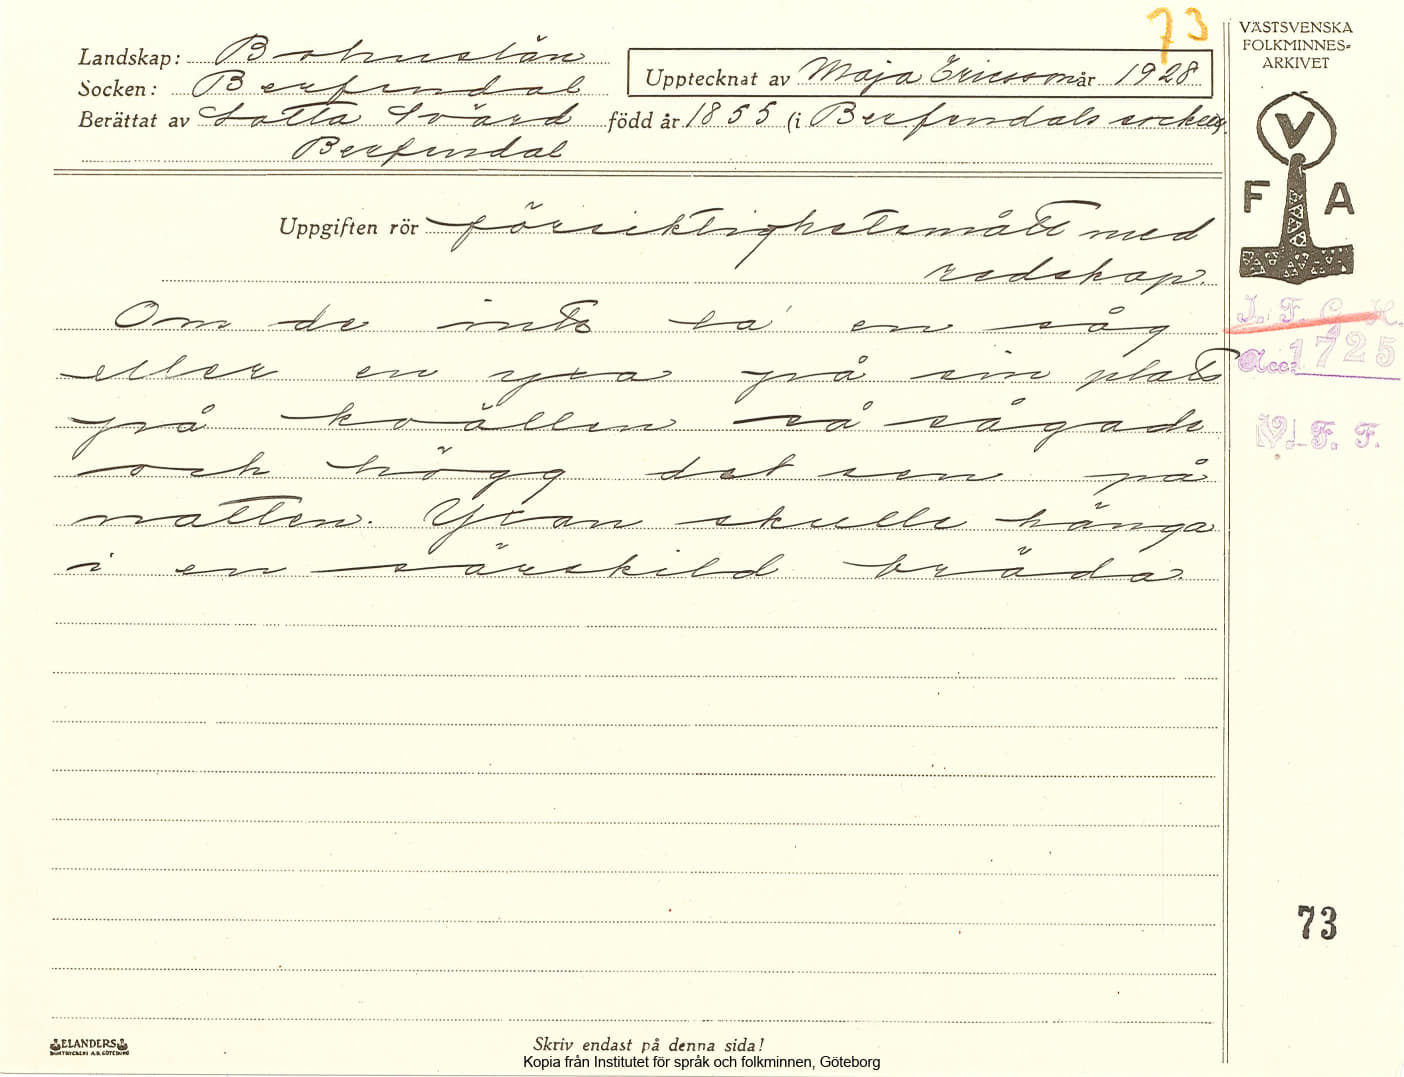 73
VÄSTSVENSKA
FOLKMINNES-
ARKIVET
Landskap: Bohuslän
Socken: Berfendal
Upptecknat av Maja Ericsson år 1928
Berättat av Lotta Svärd född år 1855 (i Berfendals socken).
Berfendal
V
F A
Uppgiften rör försiktighetsmått med
redskap.
Om de inte la' en såg
eller en yxa på sin plats
på kvällen så sågade
och högg det sen på
natten. Yxan skulle hänga
i en särskild bräda.
I. F. G. H.
Acc: 1725
V. F. F.
73
ELANDERS
BOKTRYCKERI A.B. GÖTEBORG
Skriv endast på denna sida!
Kopia från Institutet för språk och folkminnen, Göteborg